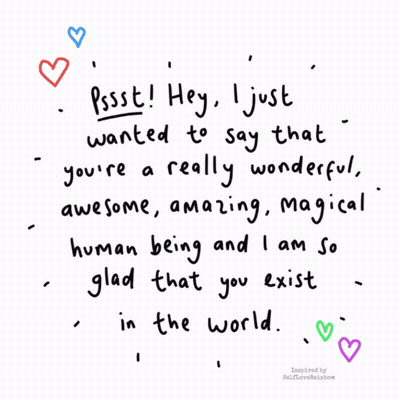 Pssst! Hey, I just
wanted to say that
you're a really wonderful,
awesome, amazing, magical
human being and I am so
glad that you exist
in the world.
Inspired by
SelfLoveRainbow